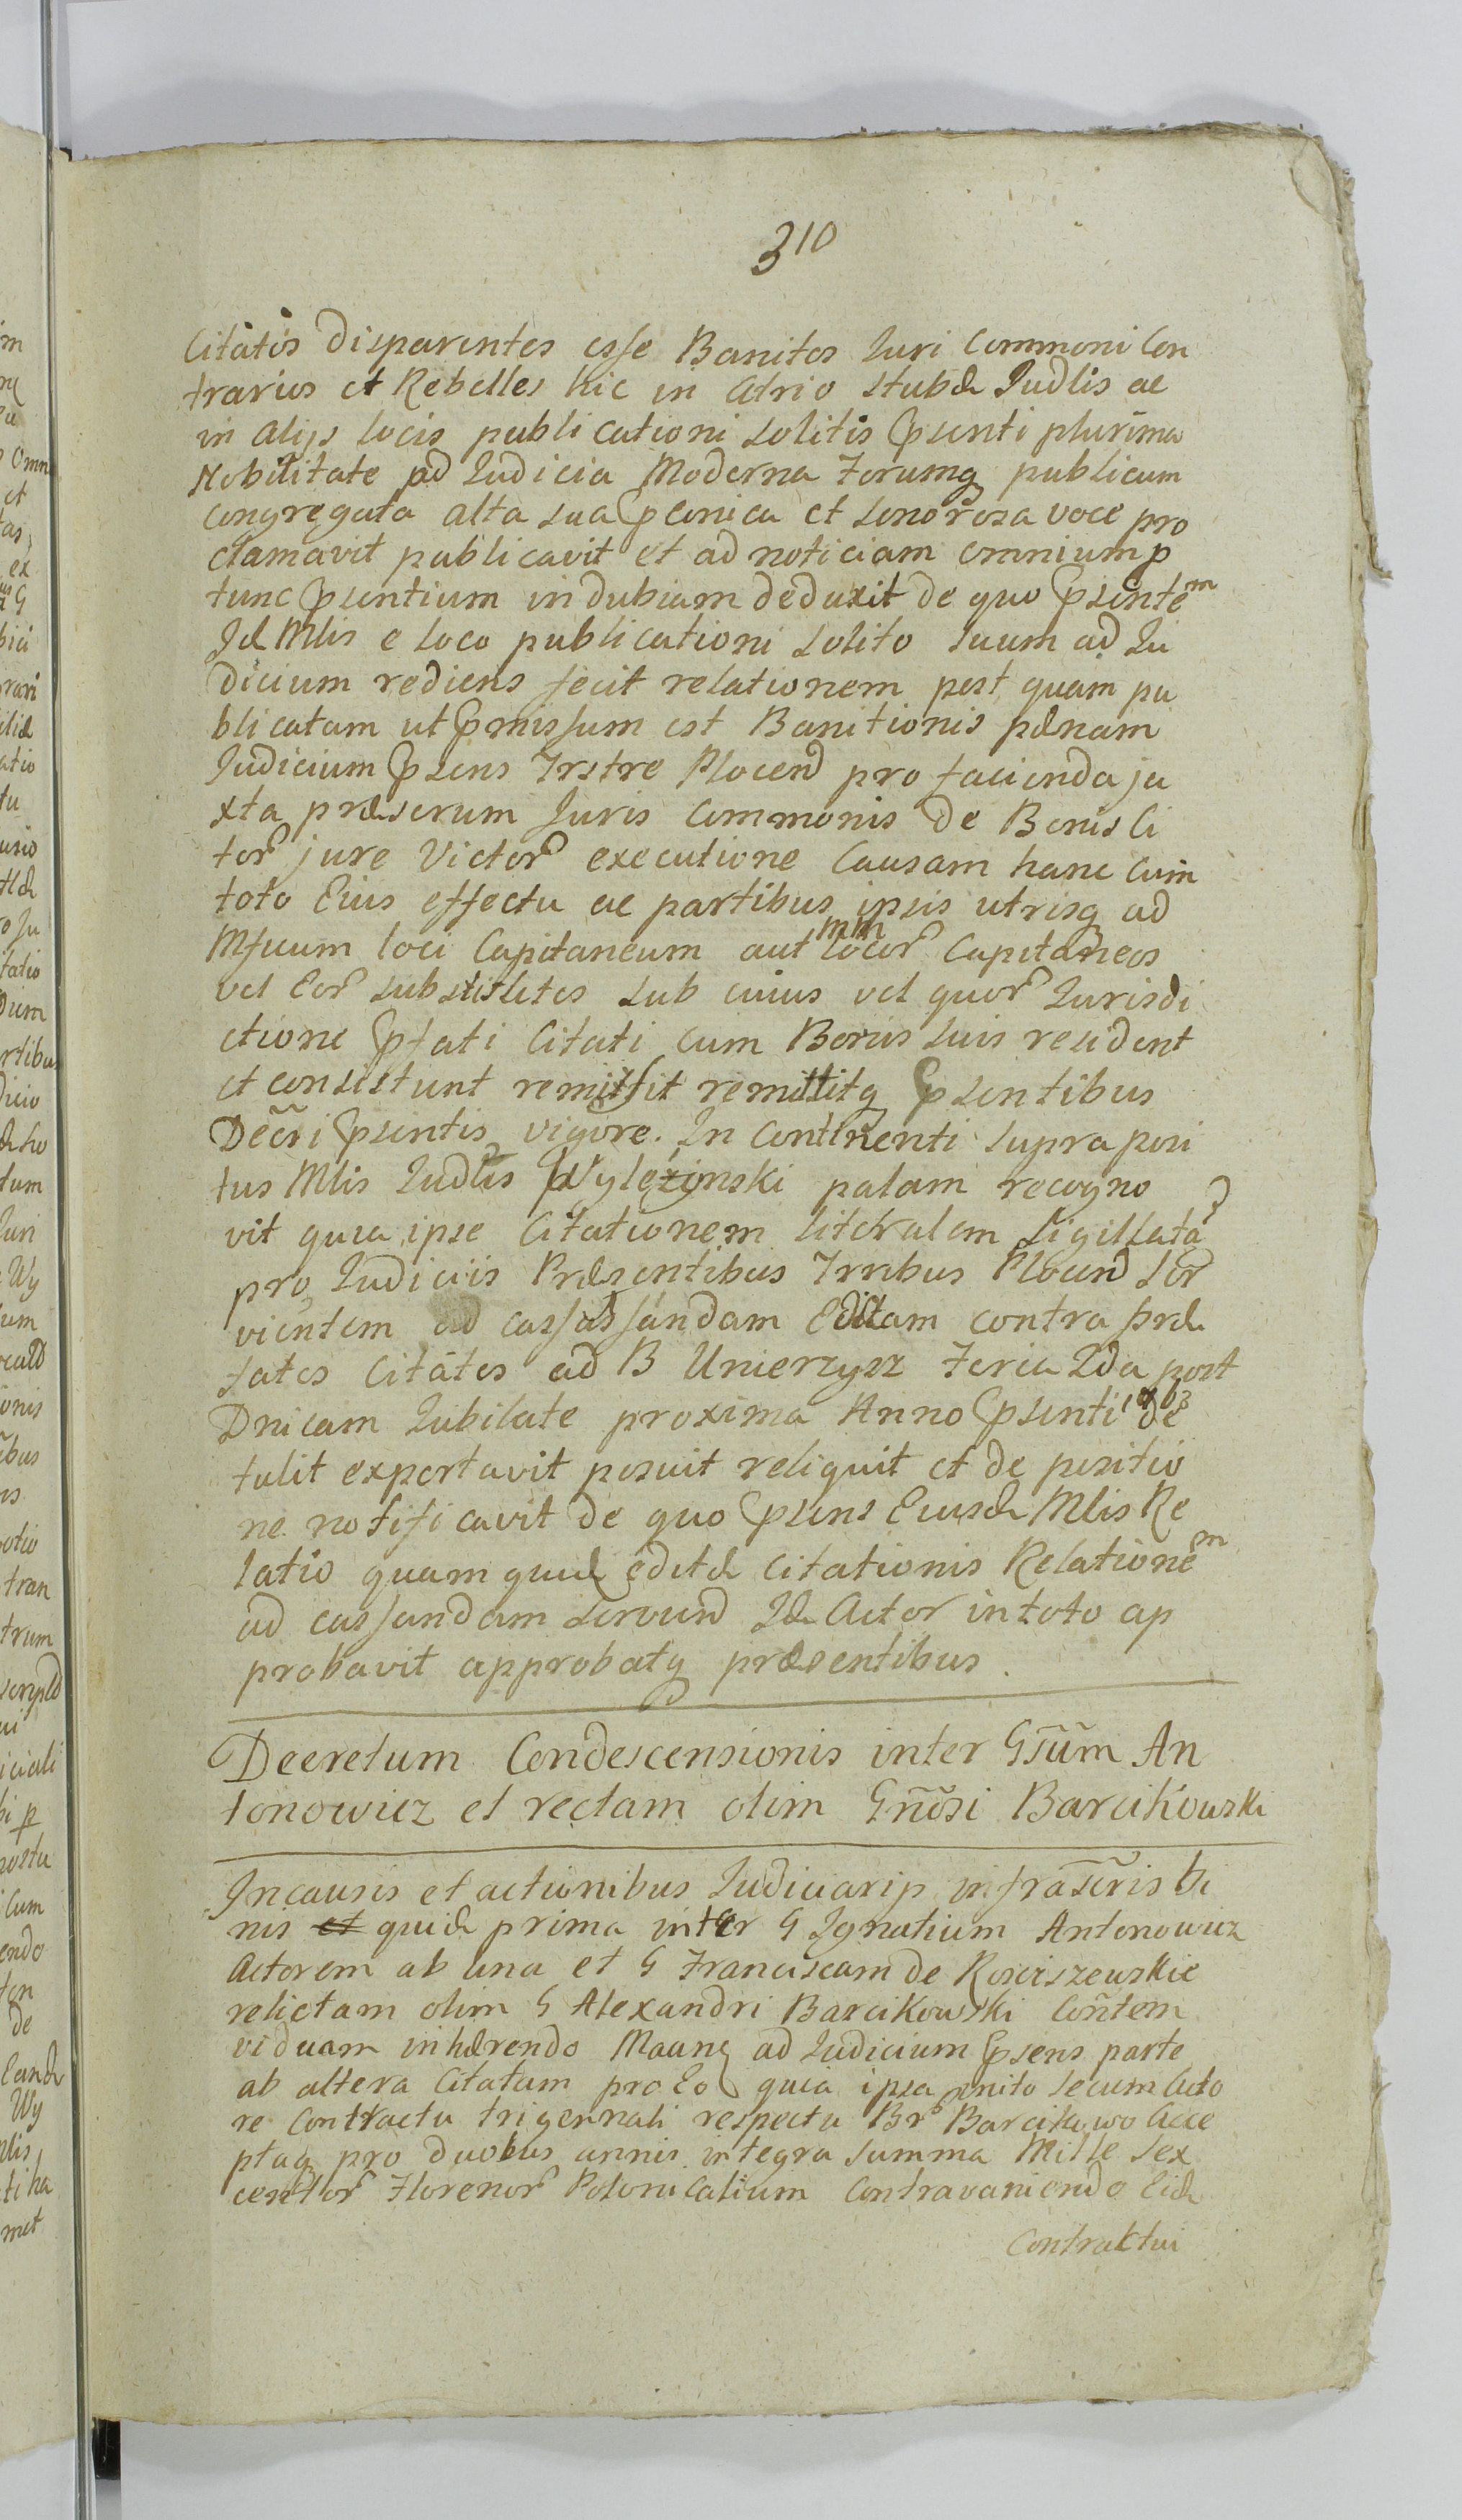 310
Citatos Disparentes esse Banitos Iuri Commoni Con
trarios et Rebelles hic in Atrio Stubæ Iudlis ac
in alijs locis publicationi solitis Psenti plurima
Nobilitate ad Iudicia Moderna Forumq publicum
congregata alta sua Pconica et sonorosa voce pro
clamavit publicavit et ad noticiam omnium p
tunc Psentium indubiam deduxit de quo Psentem
Id Mlis e loco publicationi solito suum ad Iu
dicium rediens fecit relationem post quam pu
blicatam ut Pmissum est Banitionis pænam
Iudicium Psens Trstre Plocen pro facienda ju
xta præscrum Iuris Commonis de Bonis Ci
tor jure Victor executione Causam hanc cum
toto Eius effectu ac partibus ipsis utrisq ad
Mfcum loci Capitaneum aut mm locor Capitaneos
vel Eor substitutos sub cuius vel quor Iurisdi
ctione Pfati Citati cum Bonis suis resident
et consistunt remissit remittitq Psentibus
Decri Psentis vigore. In Continenti supra posi
tus Mlis Iudlis Wyleżinski palam recogno
vit quia ipse Citationem literalem sigillata
pro Iudiciis Præsentibus Trribus Plocen Ser
vientem ad cassassandam Edittam contra præ
fatos Citatos ad B Unierzysz Feria 2da post
Dnicam Iubilate proxima Anno Psenti de
tulit exportavit posuit reliquit et de positio
ne notificavit de quo Psens Eiusd Mlis Re
latio quam quid editæ Citationis Relationem
ad cassandam servien Id Actor in toto ap
probavit approbatq præsentibus.
Decretum Condescensionis inter Gsum An
tonowicz et rectam olim Gnosi Barcikowski
In causis et actionibus Iudiciarijs infrascris bi
nis et quid prima inter G Ignatium Antonowicz
Actorem ab una et G Franciscam de Rosciszewskie
relictam olim G Alexandri Barcikowski Contem
viduam inhærendo Maanq ad Iudicium Psens parte
ab altera Citatam pro Eo quia ipsa inito secum Acto
re Contractu trigennali respectu Br Barcikowo Acce
ptaq pro duobus annis integra summa Mille sex
centor Florenor Polonicalium Contravaniendo Eid
Contraktui